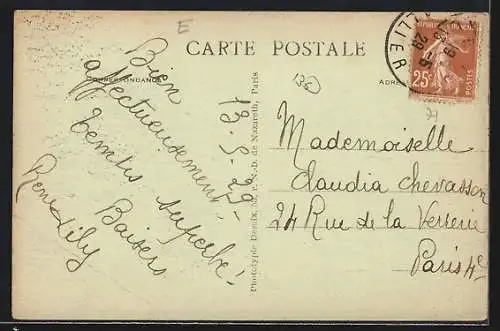 E
CARTE POSTALE
CORRESPONDANCE
Bien
affectueusement
temps superbe!
Baisers
René Lily
13-5-29-
Phototypie Desaix, r. N.-D. de Nazareth, Paris
136
LLIER
29
25c
POSTES
Mademoiselle
Claudia Chevasson
24 Rue de la Verrerie
Paris 4e